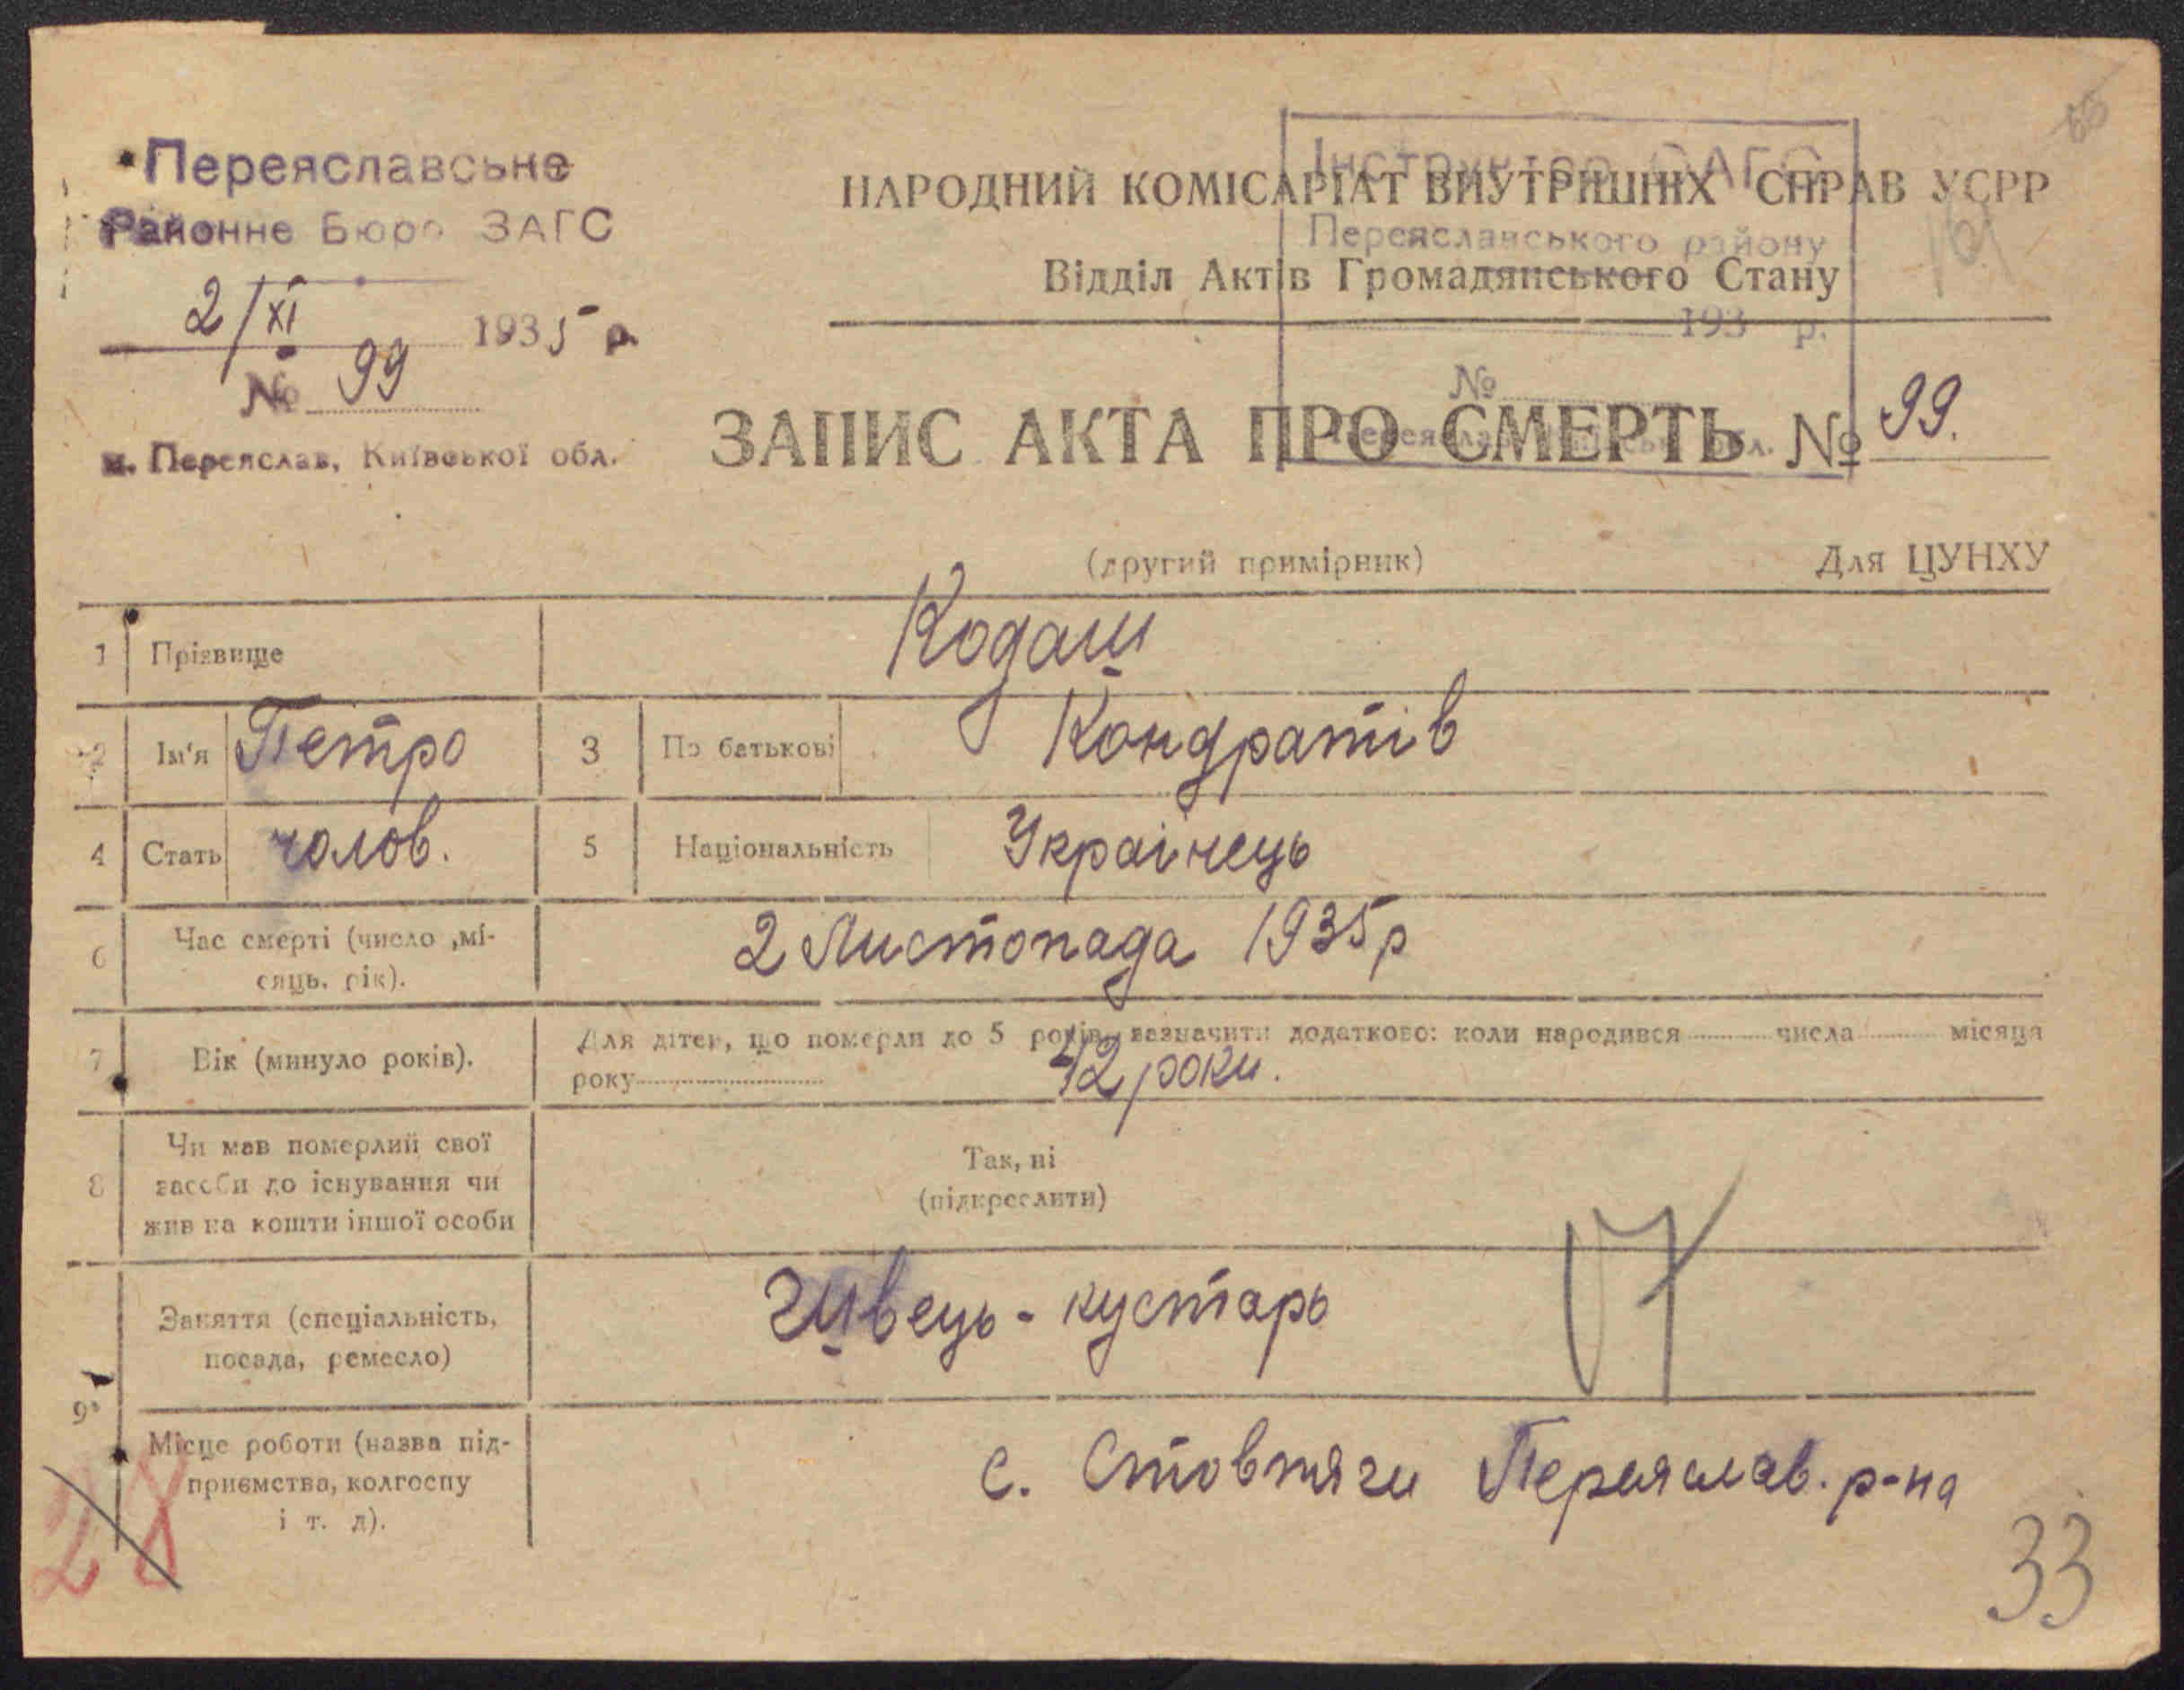 Переяславське
Районне Бюро ЗАГС
2/XI 1935 р.
№ 99
м. Переяслав, Київської обл.
Інструктор ЗАГС
Переяславського району
193 р.
№
НАРОДНИЙ КОМІСАРІАТ ВНУТРІШНІХ СПРАВ УСРР
Відділ Актів Громадянського Стану
ЗАПИС АКТА ПРО СМЕРТЬ № 99.
(другий примірник) Для ЦУНХУ
1 Прізвище Кодаш
2 Ім'я Петро 3 По батькові Кондратів
4 Стать чолов. 5 Національність Українець
6 Час смерті (число ,мі-
сяць, рік).
2 Листопада 1935 р
7 Вік (минуло років).
Для дітей, що померли до 5 років, зазначити додатково: коли народився числа місяця
року 42 роки.
8 Чи мав померлий свої
засоби до існування чи
жив на кошти іншої особи
Так, ні
(підкреслити)
9 Заняття (спеціальність,
посада, ремесло)
Швець - кустарь
17
Місце роботи (назва під-
приємства, колгоспу
і т. д).
с. Стовпяги Переяслав. р-на
28
33